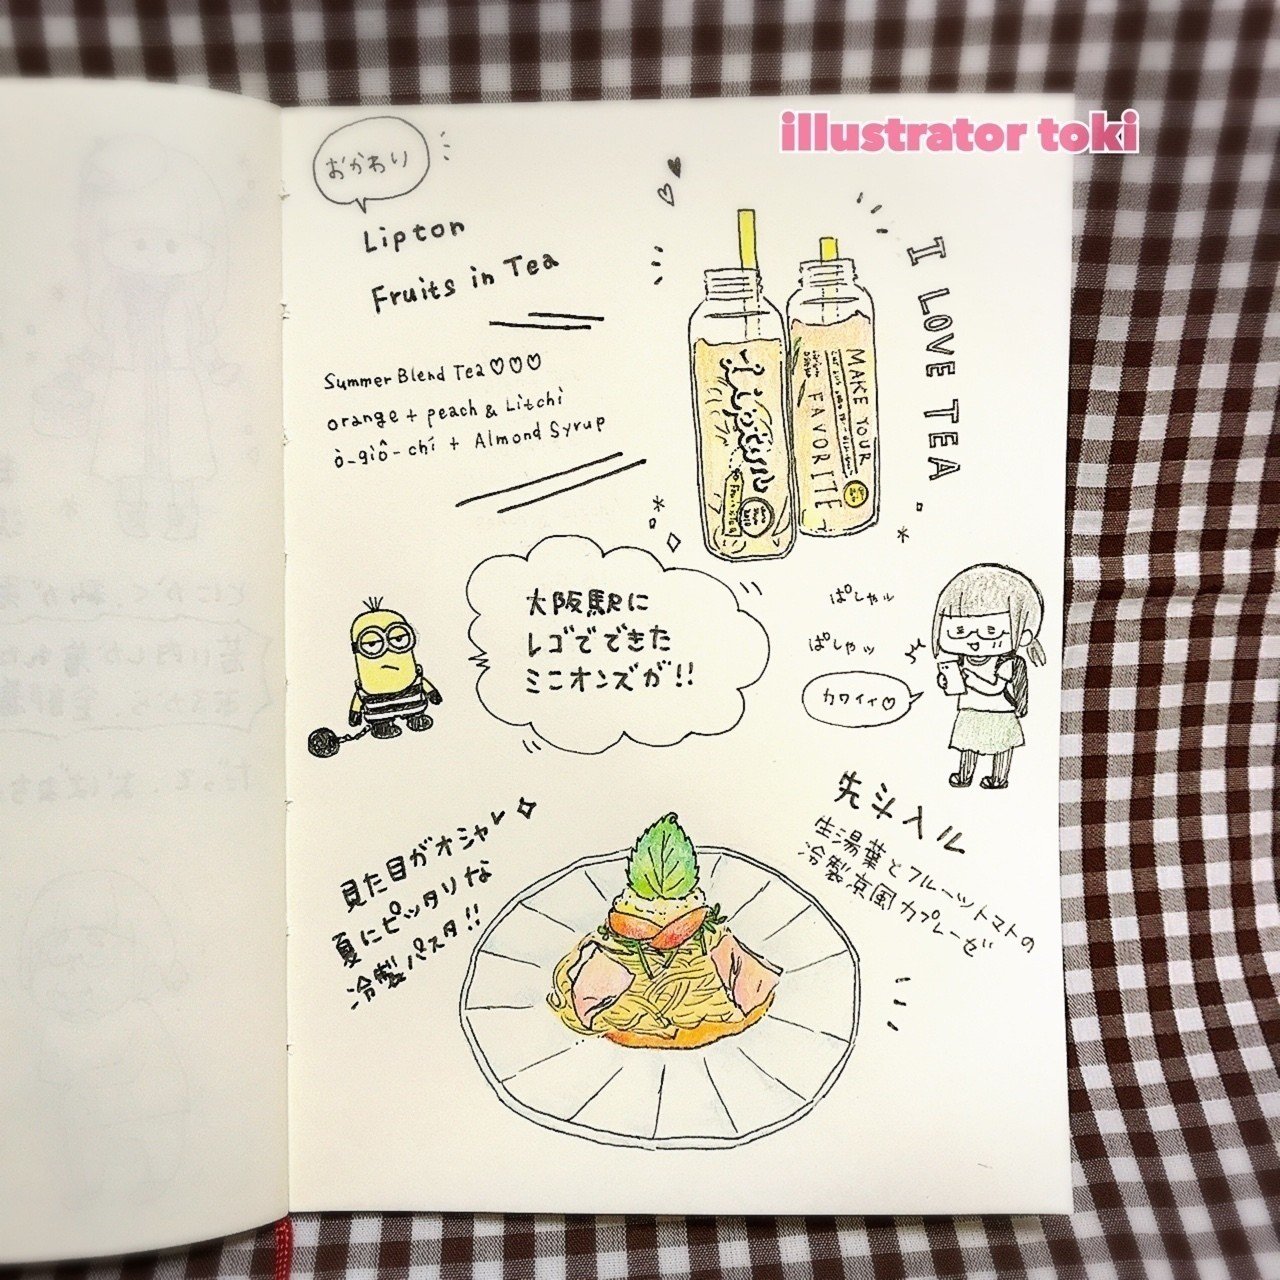 illustrator toki
おかわり
Lipton
Fruits in Tea
Summer Blend Tea♡♡♡
orange + peach & Litchi
ò-giô-chí + Almond Syrup
I LOVE TEA
Lipton
MAKE YOUR
FAVORITE
大阪駅に
レゴでできた
ミニオンズが!!
ぱしゃッ
ぱしゃッ
カワイイ♡
見た目がオシャレ
夏にピッタリな
冷製パスタ!!
先斗入ル
生湯葉とフルーツトマトの
冷製京風カプレーゼ